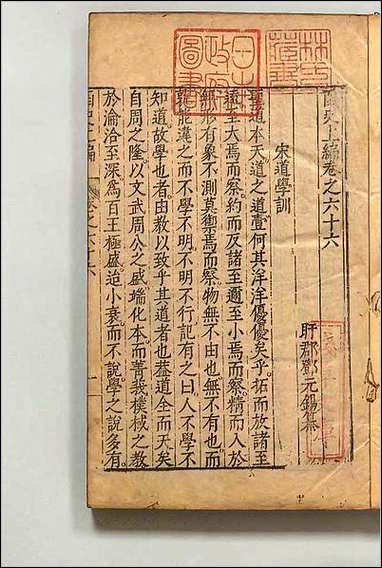 函史上編卷之六十六
盱郡鄧元錫纂
宋道學訓
聖道本天道之道壹何其洋洋優優矣乎拓而放諸至
遠至大焉而察約而反諸至邇至小焉而察精而入於
無形有象不測莫禦焉而察物無不由也無不有也
孰能違之而不學不明不明不行記有之曰人不學不
知道故學也者由教以致乎其道者也蓋道全而天矣
自周之隆以文武周公之盛端化本而菁莪棫樸之教
於淪洽至深為百王極盛迨小衰而不說學之說多有
函史上編
卷之六十六
一
林氏藏書
日本政府圖書